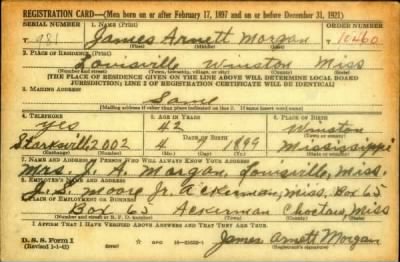 REGISTRATION CARD—(Men born on or after February 17, 1897 and on or before December 31, 1921)
SERIAL NUMBER 1. NAME (Print) ORDER NUMBER
T 181 James Arnett Morgan 10460
(First) (Middle) (Last)
2. PLACE OF RESIDENCE (Print)
Louisville Winston Miss
(Number and street) (Town, township, village, or city) (County) (State)
[THE PLACE OF RESIDENCE GIVEN ON THE LINE ABOVE WILL DETERMINE LOCAL BOARD
JURISDICTION; LINE 2 OF REGISTRATION CERTIFICATE WILL BE IDENTICAL]
3. MAILING ADDRESS
Same
[Mailing address if other than place indicated on line 2. If same insert word same]
4. TELEPHONE 5. AGE IN YEARS 6. PLACE OF BIRTH
yes 42 Winston
DATE OF BIRTH (Town or county)
Starkville 2002 4 1899 Mississippi
(Exchange) (Number) (Mo.) (Day) (Yr.) (State or country)
7. NAME AND ADDRESS OF PERSON WHO WILL ALWAYS KNOW YOUR ADDRESS
Mrs. J. A. Morgan, Louisville, Miss.
8. EMPLOYER'S NAME AND ADDRESS
J. S. Moore Jr. Ackerman, Miss. Box 65
9. PLACE OF EMPLOYMENT OR BUSINESS
Box 65 Ackerman Choctaw, Miss
(Number and street or R. F. D. number) (Town) (County) (State)
I AFFIRM THAT I HAVE VERIFIED ABOVE ANSWERS AND THAT THEY ARE TRUE.
D. S. S. Form 1
(Revised 1-1-42) (over) GPO James Arnett Morgan
(Registrant's signature)